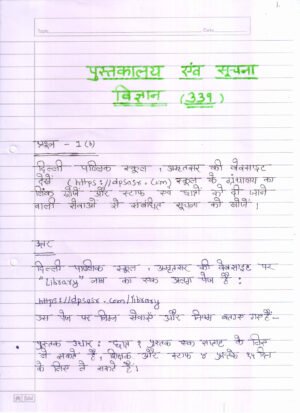 Date
पुस्तकालय एवं सूचना
विज्ञान (339)
प्रश्न - 1 (b)
दिल्ली पब्लिक स्कूल, अमृतसर की वेबसाइट
देखें (https://dpsasr.com) स्कूल के ग्रंथालय का
लिंक खोजें और स्टाफ एवं छात्रों को दी जाने
वाली सेवाओं से संबंधित सूचना को खोजें।
उत्तर
दिल्ली पब्लिक स्कूल, अमृतसर की वेबसाइट पर
"Library" नाम का एक अलग पेज है:
https://dpsasr.com/library
उस पेज पर निम्न सेवाएँ और नियम बताए गए हैं-
पुस्तक उधार: छात्र 1 पुस्तक एक सप्ताह के लिए
ले सकते हैं, शिक्षक और स्टाफ 4 पुस्तकें 15 दिन
के लिए ले सकते हैं।